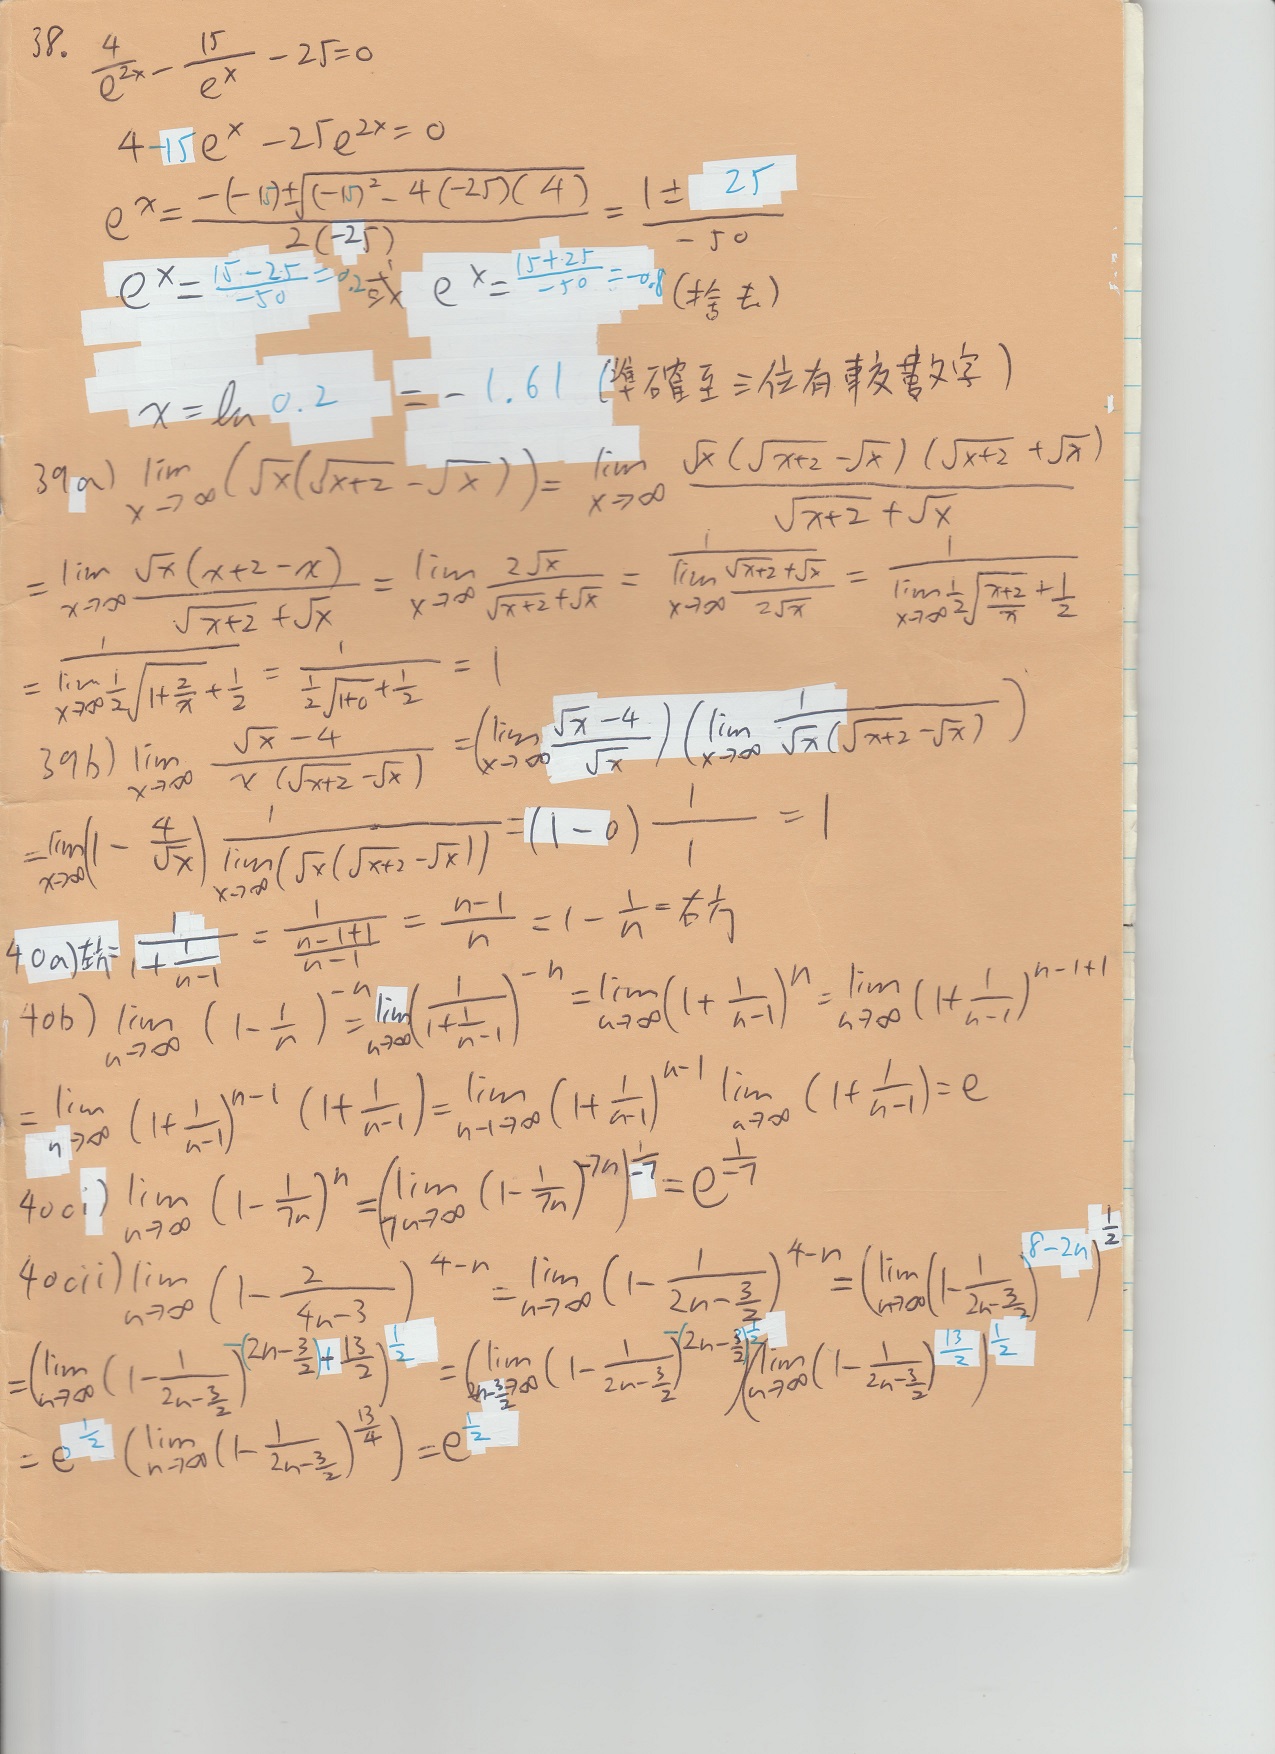 38. 4/e^{2x} - 15/e^x - 25 = 0
4 - 15e^x - 25e^{2x} = 0
e^x = (-(-15) ± √((-15)^2 - 4(-25)(4)))/(2(-25)) = (1 ± 25)/(-50)
e^x = (15 - 25)/(-50) = 0.2 或 e^x = (15 + 25)/(-50) = -0.8 (捨去)
x = ln 0.2 = -1.61 (準確至三位有效數字)
39a) lim_{x→∞} (√x(√(x+2) - √x)) = lim_{x→∞} (√x(√(x+2) - √x)(√(x+2) + √x))/(√(x+2) + √x)
= lim_{x→∞} (√x(x+2-x))/(√(x+2) + √x) = lim_{x→∞} (2√x)/(√(x+2) + √x) = 1/(lim_{x→∞} (√(x+2) + √x)/(2√x)) = 1/(lim_{x→∞} 1/2 √((x+2)/x) + 1/2)
= 1/(lim_{x→∞} 1/2 √(1 + 2/x) + 1/2) = 1/(1/2 √(1+0) + 1/2) = 1
39b) lim_{x→∞} (√x - 4)/(x(√(x+2) - √x)) = (lim_{x→∞} (√x - 4)/√x)(lim_{x→∞} 1/(√x(√(x+2) - √x)))
= lim_{x→∞} (1 - 4/√x) 1/(lim_{x→∞} (√x(√(x+2) - √x))) = (1 - 0) 1/1 = 1
40a) 左方 = 1/(1 + 1/(n-1)) = 1/((n-1+1)/(n-1)) = (n-1)/n = 1 - 1/n = 右方
40b) lim_{n→∞} (1 - 1/n)^{-n} = lim_{n→∞} (1/(1 + 1/(n-1)))^{-n} = lim_{n→∞} (1 + 1/(n-1))^n = lim_{n→∞} (1 + 1/(n-1))^{n-1+1}
= lim_{n→∞} (1 + 1/(n-1))^{n-1} (1 + 1/(n-1)) = lim_{n-1→∞} (1 + 1/(n-1))^{n-1} lim_{n→∞} (1 + 1/(n-1)) = e
40ci) lim_{n→∞} (1 - 1/(7n))^n = (lim_{7n→∞} (1 - 1/(7n))^{-7n})^{1/-7} = e^{1/-7}
40cii) lim_{n→∞} (1 - 2/(4n-3))^{4-n} = lim_{n→∞} (1 - 1/(2n - 3/2))^{4-n} = (lim_{n→∞} (1 - 1/(2n - 3/2))^{8-2n})^{1/2}
= (lim_{n→∞} (1 - 1/(2n - 3/2))^{-(2n - 3/2) + 13/2})^{1/2} = (lim_{2n-3/2→∞} (1 - 1/(2n - 3/2))^{-(2n - 3/2)})^{1/2} (lim_{n→∞} (1 - 1/(2n - 3/2))^{13/2})^{1/2}
= e^{1/2} (lim_{n→∞} (1 - 1/(2n - 3/2))^{13/4}) = e^{1/2}